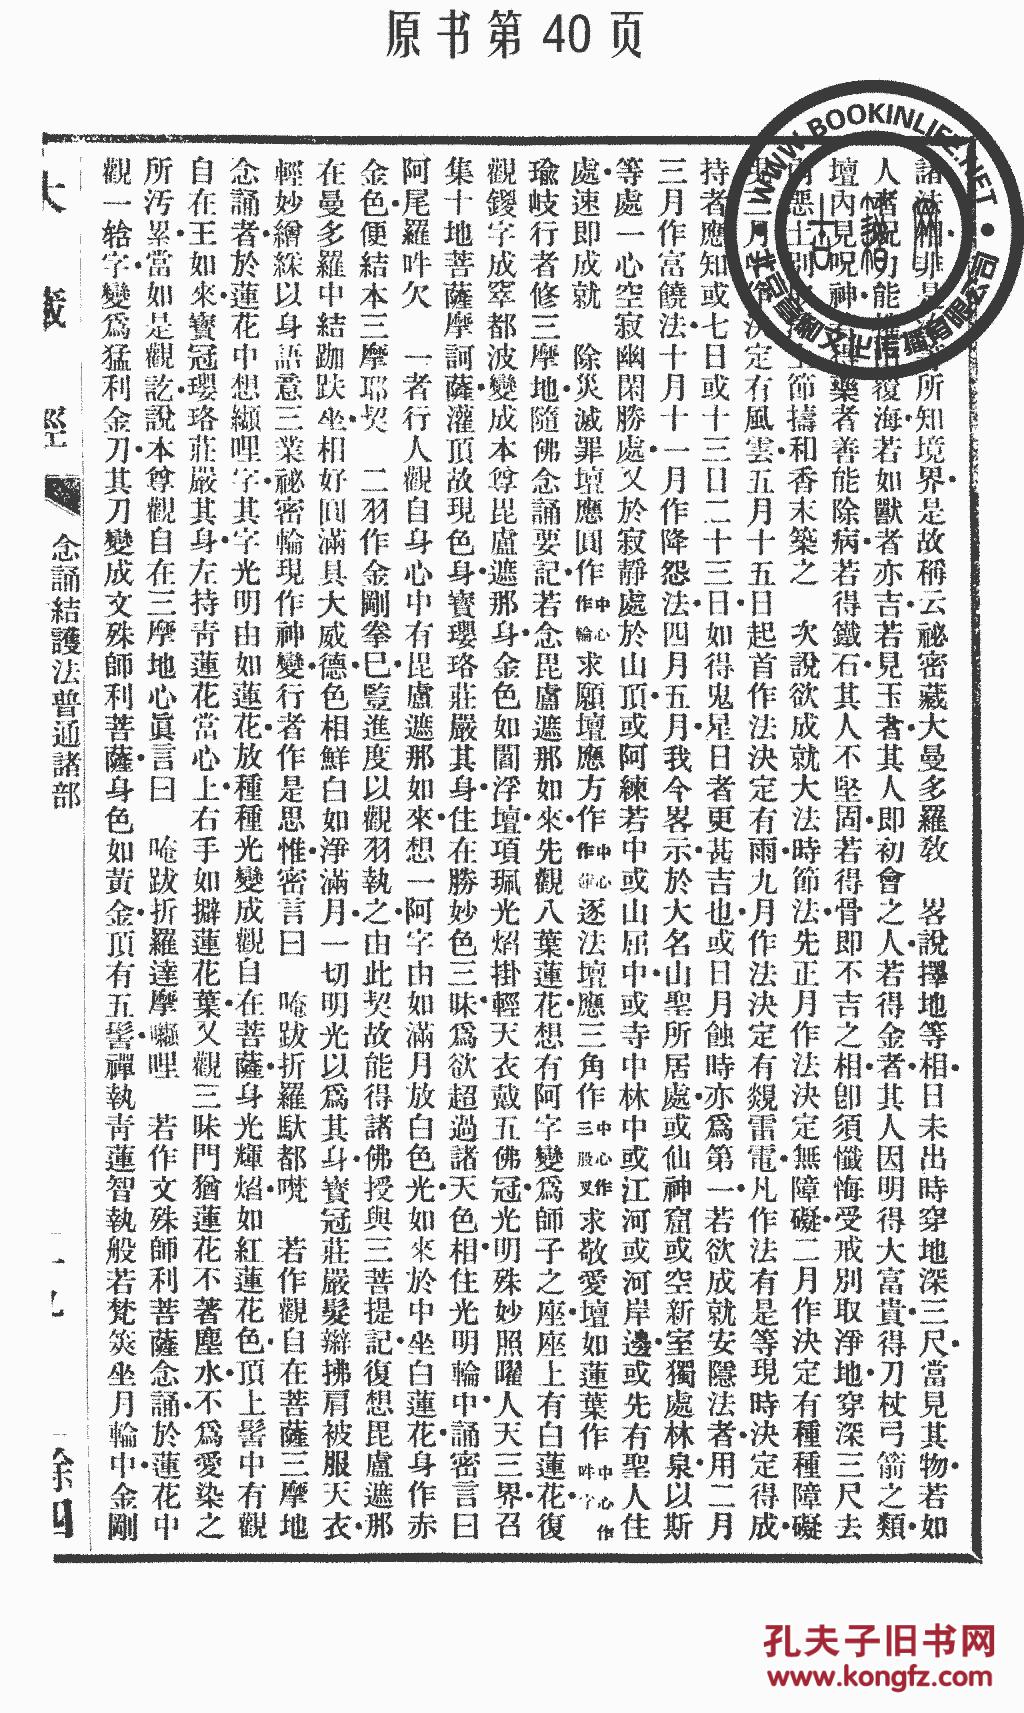 原书第 40 页
諸法相非是所知境界是故稱云祕密藏大曼多羅敎　畧說擇地等相日未出時穿地深三尺當見其物若如
人者呪力能覆海若如獸者亦吉若見玉者其人即初會之人若得金者其人因明得大富貴得刀杖弓箭之類
壇內見呪神藥者善能除病若得鐵石其人不堅固若得骨即不吉之相卽須懺悔受戒別取淨地穿深三尺去
惡土別節擣和香末築之　次說欲成就大法時節法先正月作法決定無障礙二月作決定有種種障礙
三月決定有風雲五月十五日起首作法決定有雨九月作法決定有覬雷電凡作法有是等現時決定得成
持者應知或七日或十三日二十三日如得鬼星日者更甚吉也或日月蝕時亦爲第一若欲成就安隱法者用二月
三月作富饒法十月十一月作降怨法四月五月我今畧示於大名山聖所居處或仙神窟或空新室獨處林泉以斯
等處一心空寂幽閑勝處又於寂靜處於山頂或阿練若中或山屈中或寺中林中或江河或河岸邊或先有聖人住
處速即成就　除災滅罪壇應圓作中心作輪求願壇應方作中心作蓮逐法壇應三角作中心作三股叉求敬愛壇如蓮葉作中心作吽字
瑜岐行者修三摩地隨佛念誦要記若念毘盧遮那如來先觀八葉蓮花想有阿字變爲師子之座座上有白蓮花復
觀鑁字成窣都波變成本尊毘盧遮那身金色如閻浮壇項珮光焰掛輕天衣戴五佛冠光明殊妙照曜人天三界召
集十地菩薩摩訶薩灌頂故現色身寳瓔珞莊嚴其身住在勝妙色三昧爲欲超過諸天色相住光明輪中誦密言曰
阿尾羅吽欠　一者行人觀自身心中有毘盧遮那如來想一阿字由如滿月放白色光如來於中坐白蓮花身作赤
金色便結本三摩耶契　二羽作金剛拳巳豎進度以觀羽執之由此契故能得諸佛授與三菩提記復想毘盧遮那
在曼多羅中結跏趺坐相好圓滿具大威德色相鮮白如淨滿月一切明光以爲其身寳冠莊嚴髮辮拂肩被服天衣
輕妙繒綵以身語意三業祕密輪現作神變行者作是思惟密言曰　唵跋折羅馱都㘕　若作觀自在菩薩三摩地
念誦者於蓮花中想纈哩字其字光明由如蓮花放種種光變成觀自在菩薩身光輝焰如紅蓮花色頂上髻中有觀
自在王如來寳冠瓔珞莊嚴其身左持靑蓮花當心上右手如擗蓮花葉又觀三昧門猶蓮花不著塵水不爲愛染之
所汚累當如是觀訖說本尊觀自在三摩地心眞言曰　唵跋折羅達摩囉哩　若作文殊師利菩薩念誦於蓮花中
觀一䯻字變爲猛利金刀其刀變成文殊師利菩薩身色如黃金頂有五髻禪執靑蓮智執般若梵筴坐月輪中金剛
大藏經　念誦結護法普通諸部　餘四
WWW.BOOKINLIFE.NET
孔夫子旧书网
www.kongfz.com